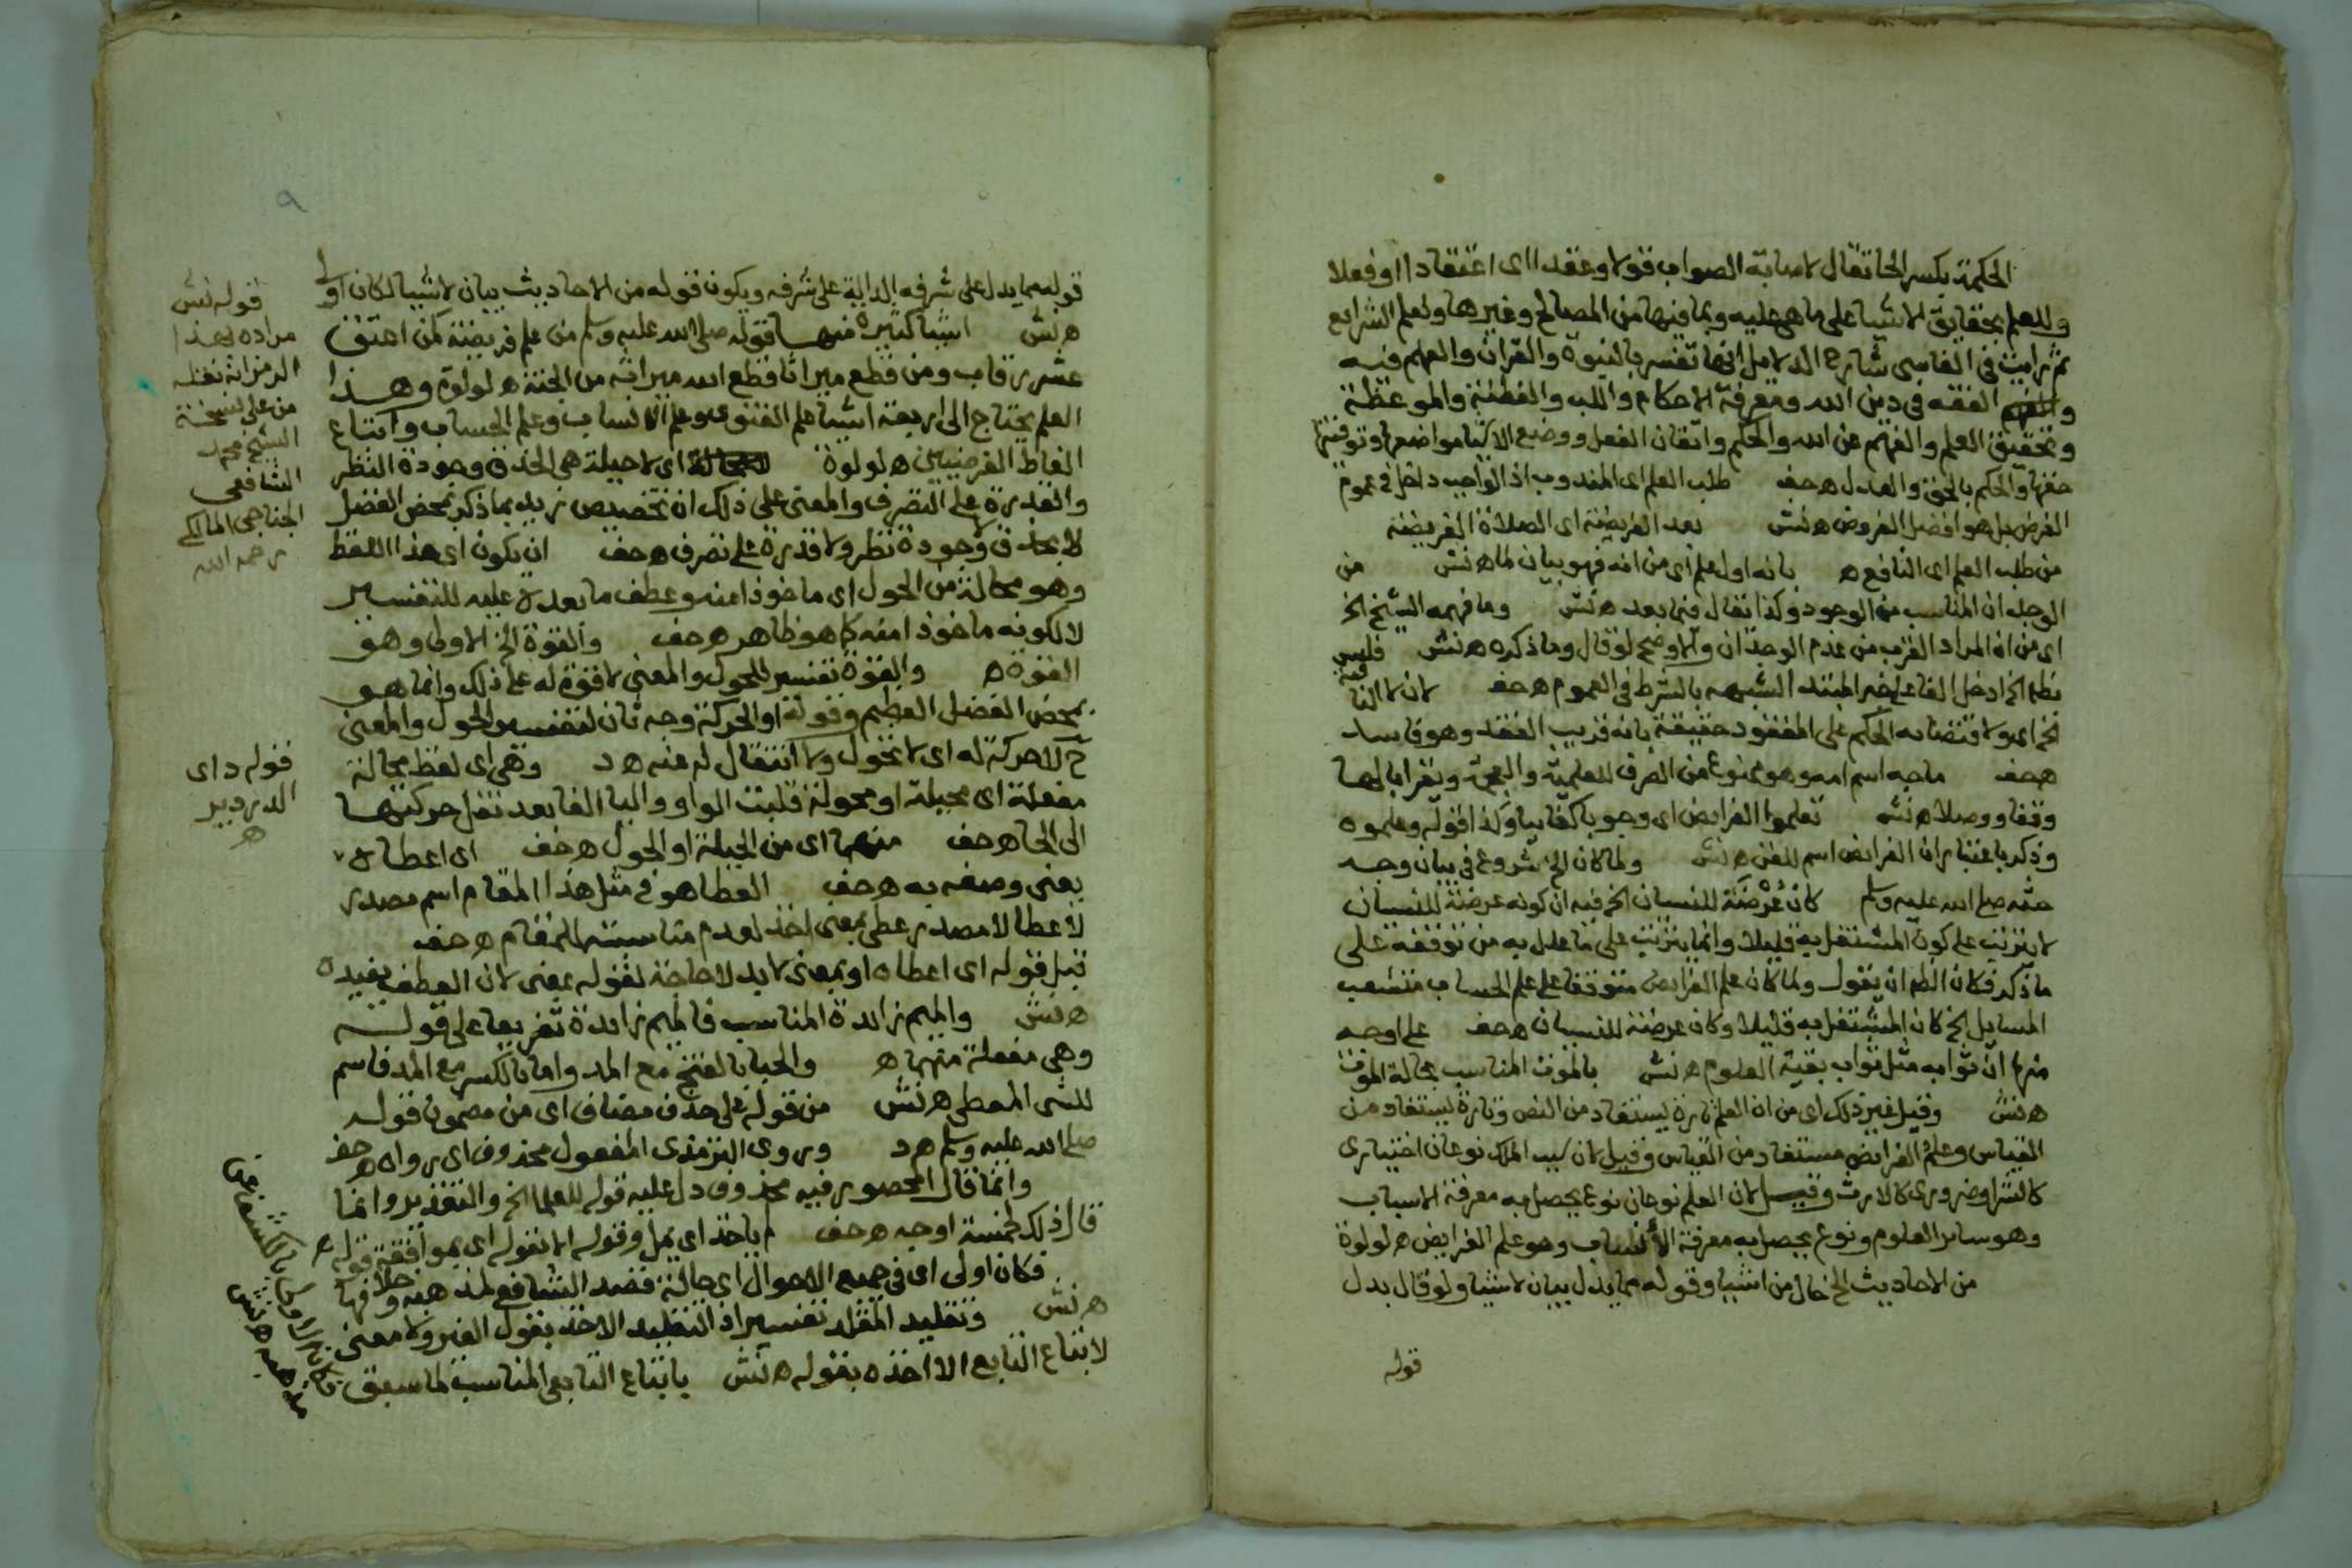 الحكمة بكسر الحا تقال لاصابة الصواب قولا وعقدا اى اعتقادا او فعلا
وللعلم بحقايق الاشيا على ماهى عليه وبما فيها من المصالح وغيرها ولعلم الشرايع
ثم رايت فى الفاسى شارح الدلايل انها تفسر بالنبوة والقران والعلم فيه
الفقه فى دين الله ومعرفة الاحكام واللب والفطنة والموعظة
وتحقيق العلم والفهم عن الله والحكم واتقان الفعل ووضع الاشيا مواضعها وتوفيتها
حقها والحكم بالحق والعدل هحف طلب العلم اى المندوب اذ الواجب داخل فى عموم
الفرض بل هو افضل الفروض ه نش بعد الفريضة اى الصلاة الفريضة
من طلب العلم اى النافع ه بانه اول علم اى من انه فهو بيان لما ه نش من
الوجد ان المناسب من الوجود وكذا تقال فيما بعد ه نش وما فهمه الشيخ الخ
اى من ان المراد القرب من عدم الوجدان والاوضح لو قال وما ذكره ه نش فليس
الخ ادخل الفا على خبر المبتدا لشبهه بالشرط فى العموم هحف لان لا
الخ اى ولا قتضائه الحكم على المفقود حقيقة بانه قريب الفقد وهو فاسد
هحف ماجه اسم امه وهو ممنوع من الصرف للعلمية والعجمة ويقرا بالها
وقفا ووصلا ه نش تعلموا الفرايض اى وجوبا كفاييا وكذا قوله وعلموه
وذكر باعتبار ان الفرايض اسم للفن ه نش ولما كان الخ شروع فى بيان وجه
حثه صلى الله عليه وسلم كان عرضة للنسيان الخ فيه ان كونه عرضة للنسيان
لا يترتب على كون المشتغل به قليلا وانما يترتب على ما علل به من توقفه على
ما ذكر فكان الظ ان يقول ولما كان علم الفرايض متوقفا على علم الحساب متشعب
المسايل الخ كان المشتغل به قليلا وكان عرضة للنسيان هحف على اوجه
منها ان ثوابه مثل ثواب بقية العلوم ه نش بالموت المناسب بحالة الموت
ه نش وقيل غير ذلك اى من ان العلم تارة يستفاد من النص وتارة يستفاد من
القياس وعلم الفرايض مستفاد من القياس وقيل لان سبب الملك نوعان اختيارى
كالشرا وضرورى كالارث وقيل لان العلم نوعان نوع يحصل به معرفة الاسباب
وهو ساير العلوم ونوع يحصل به معرفة الانساب وهو علم الفرايض ه لولوة
من الاحاديث الخ حال من اشيا وقوله مما يدل بيان لاشيا ولو قال بدل
قوله
٩
قوله مما يدل على شرفه الدالة على شرفه ويكون قوله من الاحاديث بيان لاشيا لكان اولى
ه نش اشيا كثيرة منها قوله صلى الله عليه وسلم من علم فريضة كمن اعتق
عشر رقاب ومن قطع ميراثا قطع الله ميراثه من الجنة ه لولوة وهذا
العلم يحتاج الى اربعة اشيا علم الفتوى وعلم الانساب وعلم الحساب واتباع
الفاظ الفرضيين ه لولوة لا محالة اى لا حيلة هى الحذق وجودة النظر
والقدرة على التصرف والمعنى على ذلك ان تخصيص زيد بما ذكر بمحض الفضل
لا بحذق وجودة نظر ولا قدرة على تصرف هحف ان يكون اى هذا اللفظ
وهو محالة من الحول اى ماخوذا منه وعطف ما بعده عليه للتفسير
لا لكونه ماخوذا منه كما هو ظاهر هحف والقوة الخ الاولى وهو
القوة ه والقوة تفسير للحول والمعنى لا قوة له على ذلك وانما هو
بمحض الفضل العظيم وقوله او الحركة وجه ثان لتفسير الحول والمعنى
ح لا حركة له اى لا تحول ولا انتقال له عنه ه د وهى اى لفظ محالة
مفعلة اى محيلة او محولة قلبت الواو واليا الفا بعد نقل حركتها
الى الحا هحف منهما اى من الحيلة او الحول هحف اى اعطاه
بمعنى وصفه به هحف العطا هو فى مثل هذا المقام اسم مصدر
لاعطا لا مصدر عطى بمعنى اخذ لعدم مناسبته للمقام هحف
قيل قوله اى اعطاه او بمعنى لا بد لا حاجة لقوله بمعنى لان العطف يفيده
ه نش والميم زائدة المناسب فالميم زايدة تفريعا على قوله
وهى مفعلة منهما ه والحبا بالفتح مع المد واما بالكسر مع المد فاسم
للشى المعطى ه نش من قوله على حذف مضاف اى من مضمون قوله
صلى الله عليه وسلم ه د وروى الترمذى المفعول محذوف اى رواه هحف
وانما قال المحصور فيه محذوف دل عليه قوله للعلما الخ والتقدير وانما
قال ذلك لخمسة اوجه هحف م ياخذ اى يعمل وقوله الا بقوله اى بموافقة قوله ه
فكان اولى اى فى جميع الاحوال اى حالة قصد الشافعى لمذهبه وخلافها
ه نش وتقليد المقلد تفسير اذ التقليد الاخذ بقول الغير ولا معنى
لاتباع التابع الا اخذه بقوله ه نش باتباع التابعى المناسب لما سبق
قوله نش
مراده بهذا
الرمز انه نقله
من على نسخة
الشيخ محمد
الشافعى
الجناجى المالكى
رحمه الله
قوله د اى
الدردير
ه